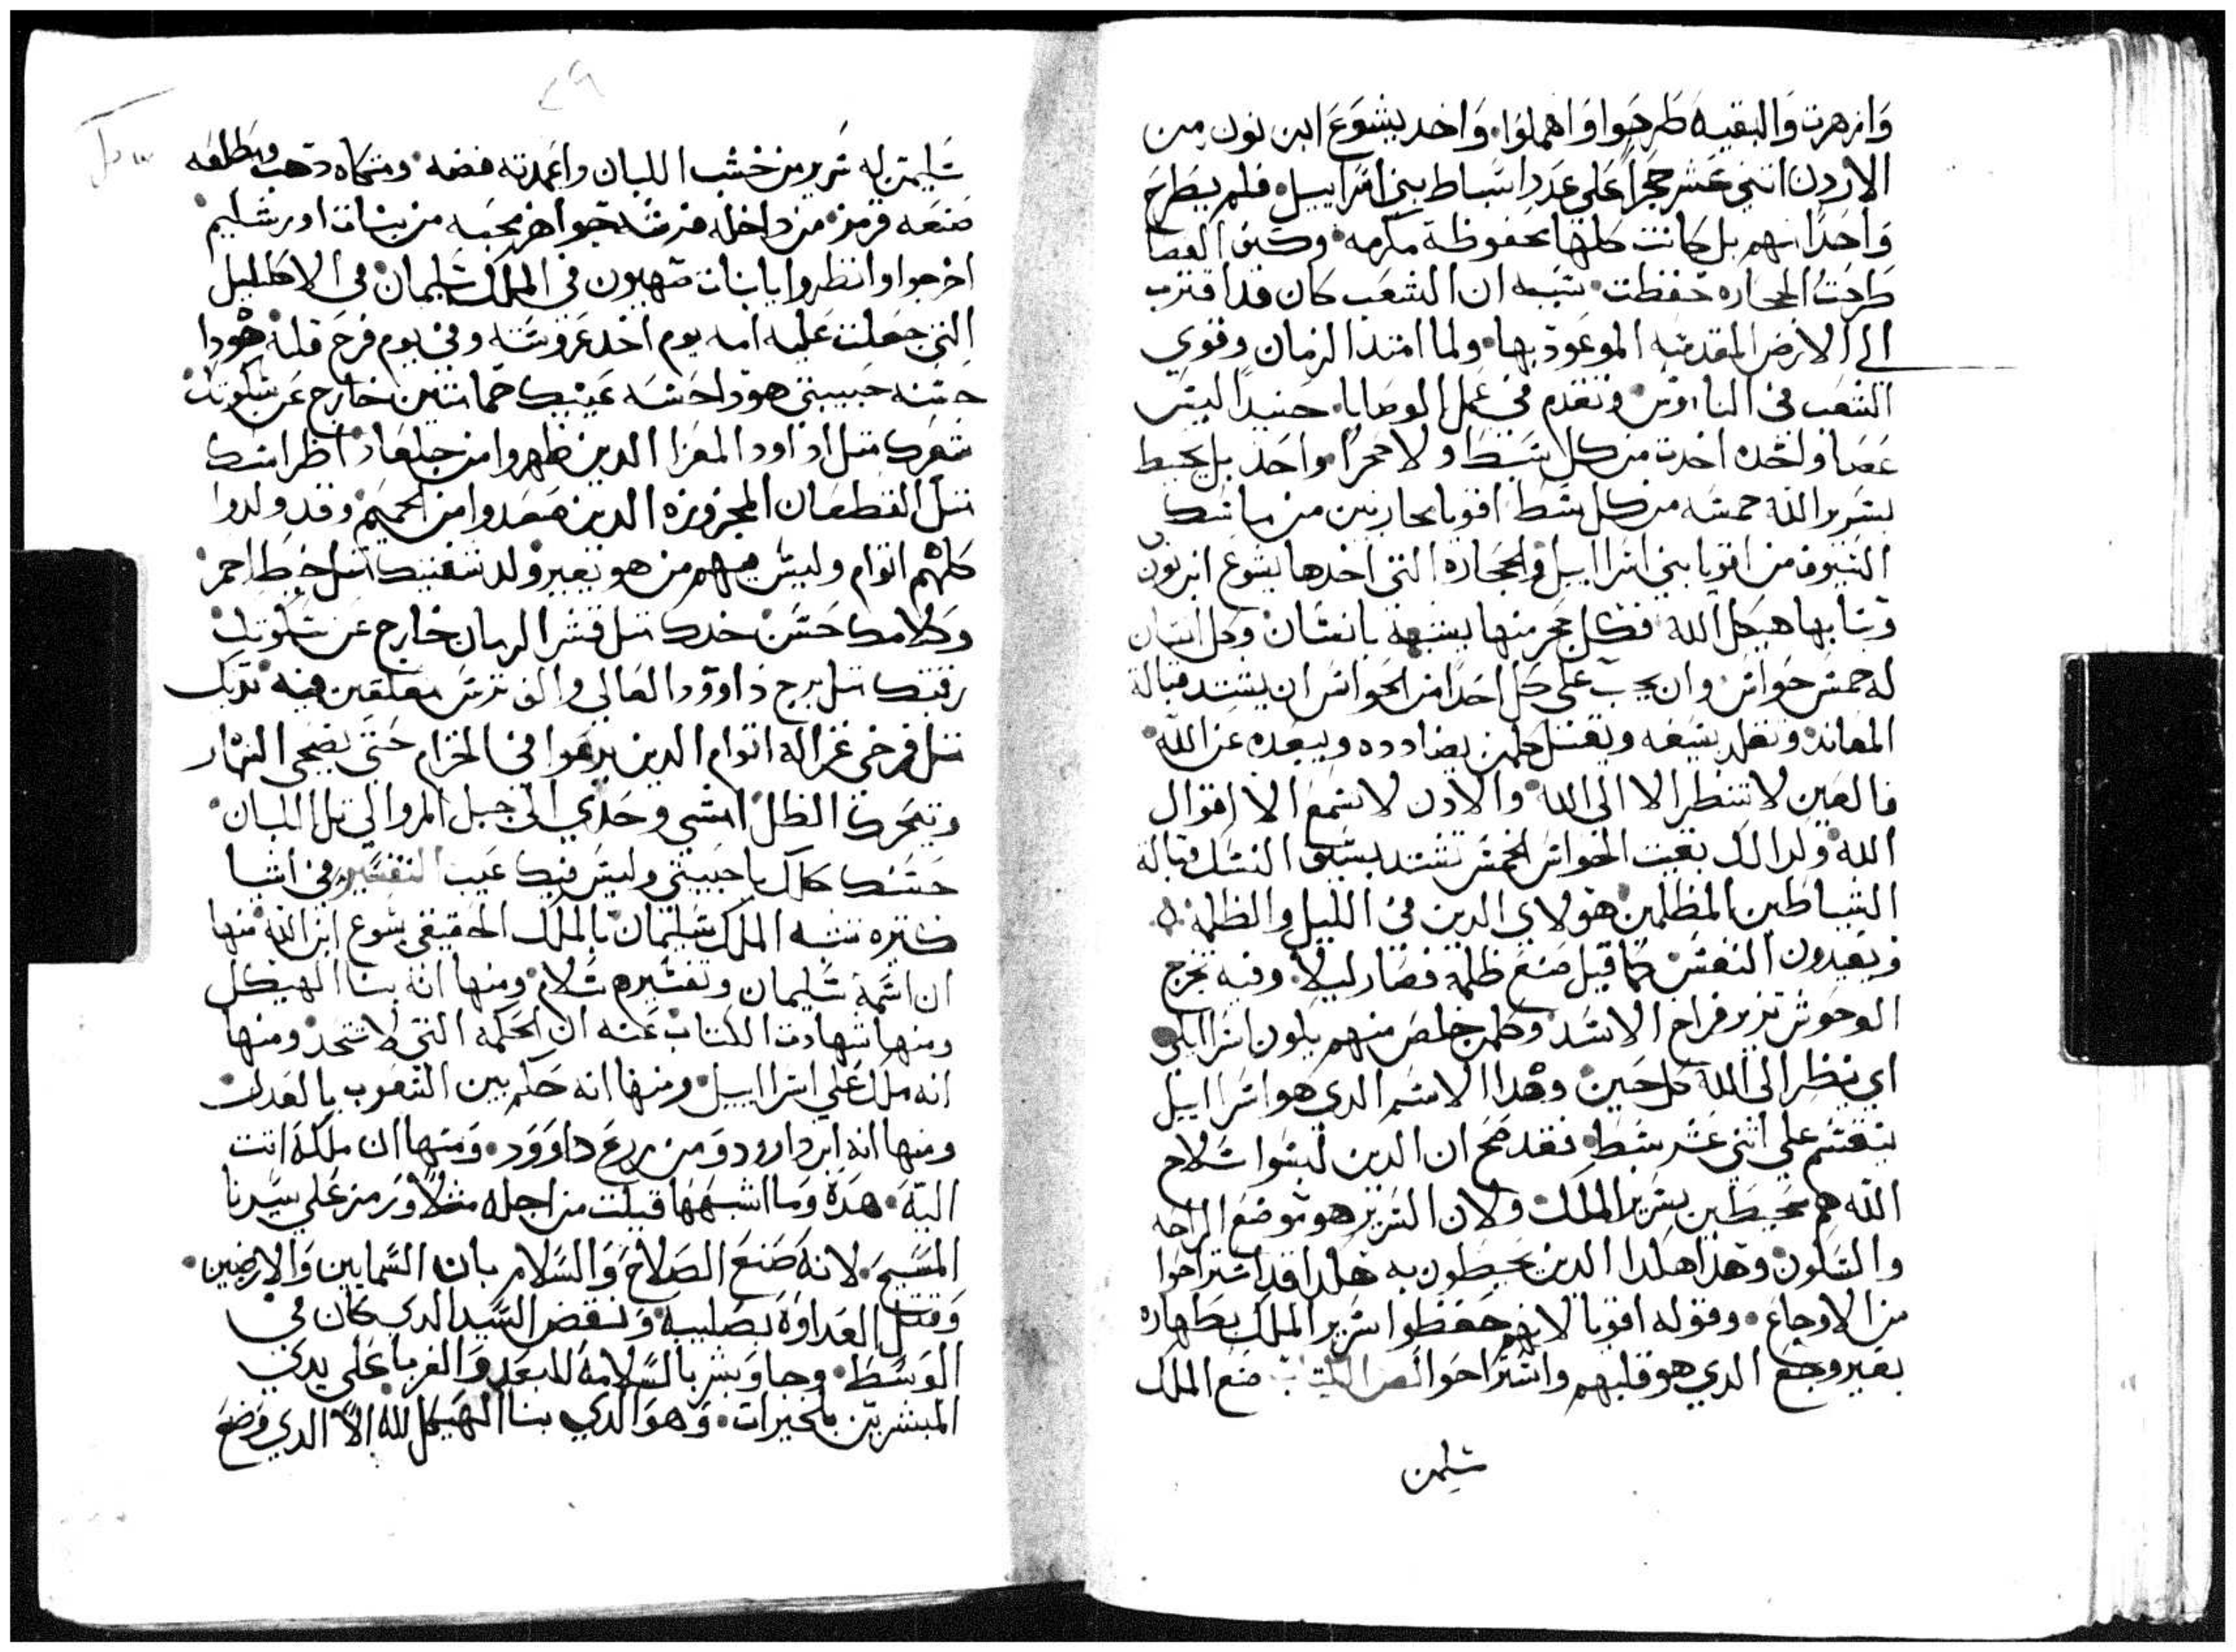 وازهرت والبقيه طرحوا واهملوا. واخد يشوع ابن نون من
الاردن اتني عشر حجراً على عدد اسباط بني اسراييل. فلم يطرح
واحداً منهم بل كانت كلها محفوظة مكرمه. وحين العصا
طرحت الحجاره حفظت. شبه ان الشعب كان قد اقترب
الي الارض المقدسه الموعود بها. ولما امتد الزمان وقوي
الشعب في وتقدم في عمل الوصايا. حنيد ليس
عصا واحده اخدت من كل سبط ولا حجراً واحد بل يحيط
بسرير الله خمسه من كل سبط اقويا محاربين من ماسك
السيوف من اقويا بني اسراييل. والحجاره التي اخدها يشوع ابن نون
وبنا بها هيكل الله فكل حجر منها يشبهة بانسان وكل انسان
له خمس حواس وان يجب على كل احد من الحواس ان يستد قبالة
المعاند وتقلد بسيفه ويقتل كلمن يضادده ويبعده عن الله
فالعين لا تنظر الا الى الله والادن لا تسمع الا اقوال
الله ولدالك بقيت الحواس الخمس تشتد بسيف النسك قبالة
الشياطين المظلمين هولاي الدين في الليل والظلمه
ويصيدون النفس كما قيل صنع ظلمة فصار ليلا. وفيه تخرج
الوحوش تزير فراخ الاسد وكلمن خلص منهم يكون اسراييلي
اي ينظر الى الله كل حين وهدا الاسم الدي هو اسراييل
ينقسم علي اتني عشر سبط فقد صح ان الدين لبسوا سلاح
الله هم محيطين بسرير الملك ولان السرير هو موضع الراحه
والسكون وهدا هكدا الدين يحيطون به هكدا قد استراحوا
من الاوجاع. وقوله اقويا لانهم حفظوا سرير الملك بطهاره
بغير وجع الدي هو قلبهم واستراحوا الكتاب صنع الملك
سليمن
٤٩
سليمن له سرير من خشب اللبان واعمدته فضه ومتكاه دهب ومطلعه
صنعه قرمز من داخله فرشه جواهر محبه من بنات اورشليم
اخرجوا وانظروا يا بنات صهيون في الملك سليمان في الاكليل
التي جعلت عليه امه يوم اخد عروسته وفي يوم فرح قلبه هودا
حسنه حبيبتي هودا حسنه عينيك حمامتين خارج عن سكوتك
شعرك متل المعزا الدين ظهروا من جلعاد اظراسك
متل القطعان المجزوزه الدين صعدوا من الحميم وقد ولدوا
كلهم اتوام وليس فيهم من هو بغير ولد شفتيك متل خيط احمر
وكلامك حسن خدك متل قشر الرمان خارج عن سكوتك
رقبتك متل برج داوود العالي والف ترس معلقين فيه تديك
متل فرخي غزاله اتوام الدين يرعوا في الخزام حتى يضحي النهار
وتتحرك الظل امشي وحدي الى جبل المر والي تل اللبان
حسنك كامل يا حبيبتي وليس فيك عيب التفسير في اشيا
كتيره تشبه الملك سليمان بالملك الحقيقي يسوع ابن الله منها
ان اسمه سليمان وتفسيره سلام ومنها انه بنا الهيكل
ومنها شهادت الكتاب عنه ان الحكمه التي لا تتحد ومنها
انه ملك علي اسراييل ومنها انه حكم بين الشعوب بالعدل
ومنها انه ابن داوود ومن زرع داوود. ومنها ان ملكة اتت
اليه. هده وما اشبهها قيلت من اجله مثلاً ورمز علي سيدنا
المسيح. لانه صنع الصلاح والسلام بان السمايين والارضين.
وقتل العداوه بصليبه ونقض السيد الدي كان في
الوسط. وجا وبشر بالسلامه للبعد والغربا على يدي
المبشرين بالخيرات. وهو الدي بنا الهيكل لله الا الدي وضع